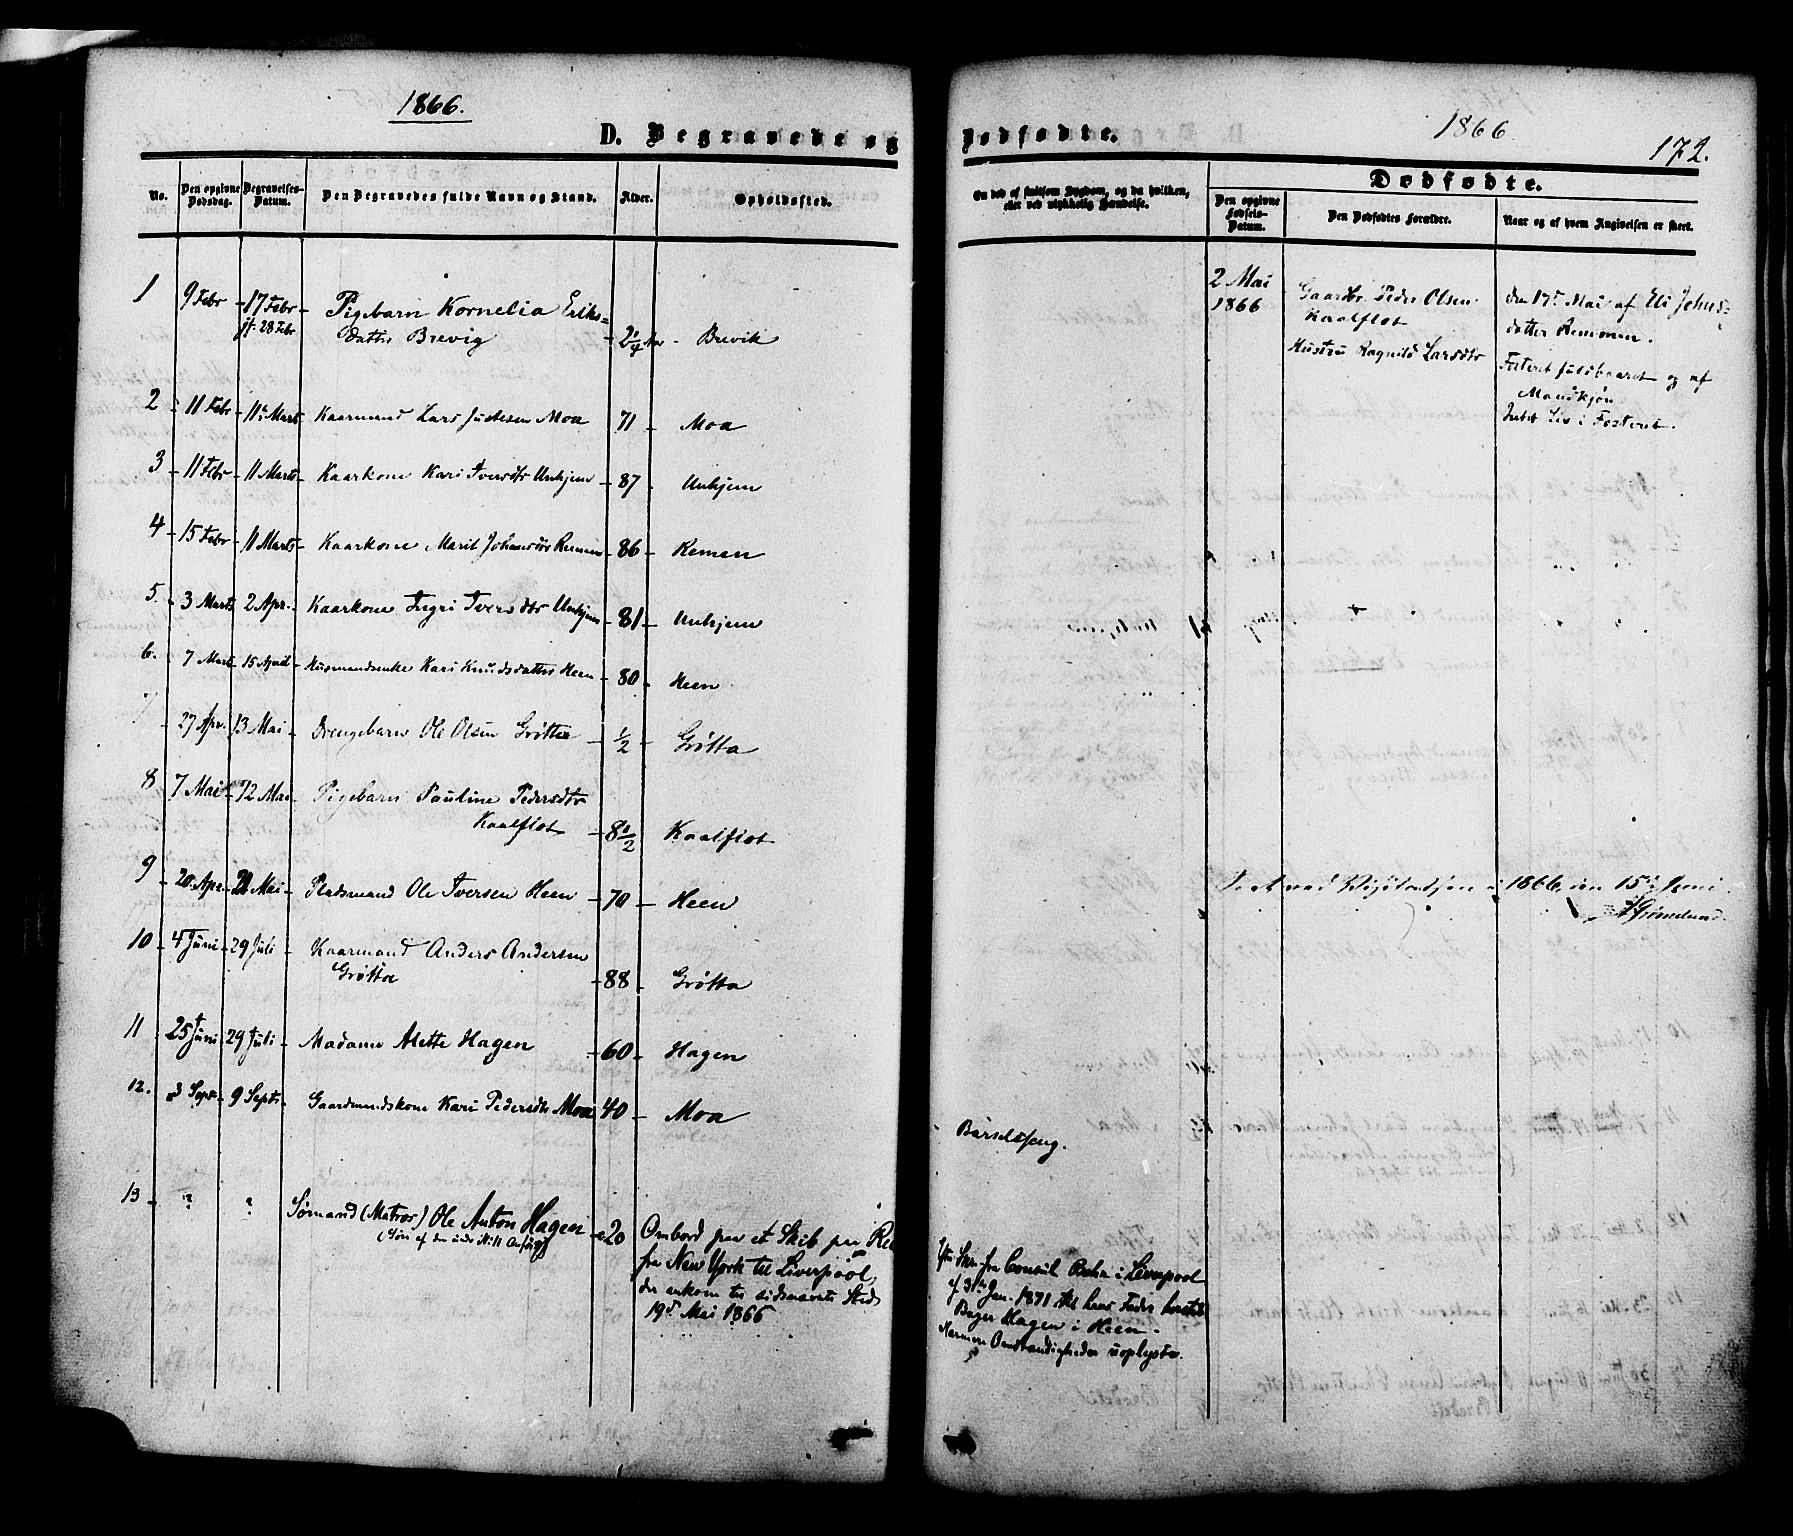 1866.
D. Begravede og
No.
Den opgivne Dødsdag.
Begravelses-Datum.
Den Begravedes fulde Navn og Stand.
Alder.
Opholdssted.
1 9 Febr 17 Febr Pigebarn Kornelia Eriks=
jf. 28 Febr
datter Brevig 2 1/4 Aar Brevik
2 11 Febr 11te Marts Kaarmand Lars Judesen Moa 71 Moa
3 11 Febr 11 Marts Kaarkone Kari Iversdtr Unhjem 87 Unhjem
4 15 Febr 11 Marts Kaarkone Marit Johansdtr Remmen 86 Remen
5. 3 Marts 2 Apr. Kaarkone Ingri Iversdtr Unhjem 81 Unhjem
6. 7 Marts 15 April Husmandsenke Kari Knudsdatter Heen 80 Heen
7 27 Apr. 13 Mai Drengebarn Ole Olsen Grötta 1/2 Grötta
8 7 Mai 12 Mai Pigebarn Pauline Pedersdtr
Kaalflot 8 1/2 Kaalflot
9 20 Apr. Mai Pladsmand Ole Iversen Heen 70 Heen
10 4 Juni 29 Juli Kaarmand Anders Andersen
Grötta 88 Grötta
11 25 Juni 29 Juli Madame Alette Hagen 60 Hagen
12. Sept. 9 Septr. Gaardmandskone Kari Pedersdtr Moa 40 Moa
13 ? ? Sømand (Matros) Ole Anton Hagen 20 Ombord paa et Skib paa Rei
(Søn af den under N. 11 Anførte)
fra New York til Liverpool,
der ankom til sidstnævnte Sted
19de Mai 1866
1866
172.
Dødfødte.
En død af smitsom Sygdom, og da hvilken,
eller ved ulykkelig Hændelse.
Dødfødte.
Den opgivne Fødsels-Datum.
Den Dødfødtes Forældre.
Naar og af hvem Angivelsen er skeet.
2 Mai
1866
Gaardbr. Peder Olsen
Kaalflot
Hustru Ragnild Larsdtr
den 17de Mai af Eli Johns=
datter Remmen.
Fosteret fuldbaaret og af
Mandkjøn
Intet Liv i Fosteret.
Seet ved Visitatsen i 1866, den 15de Juni.
Grimelund
Barselseng.
Efter Skr. fra Consul Behn i Liverpool
af 31te Jan. 1871 til hans Fader
Bager Hagen i Heen.
Nærmere Omstændigheder uoplyste.